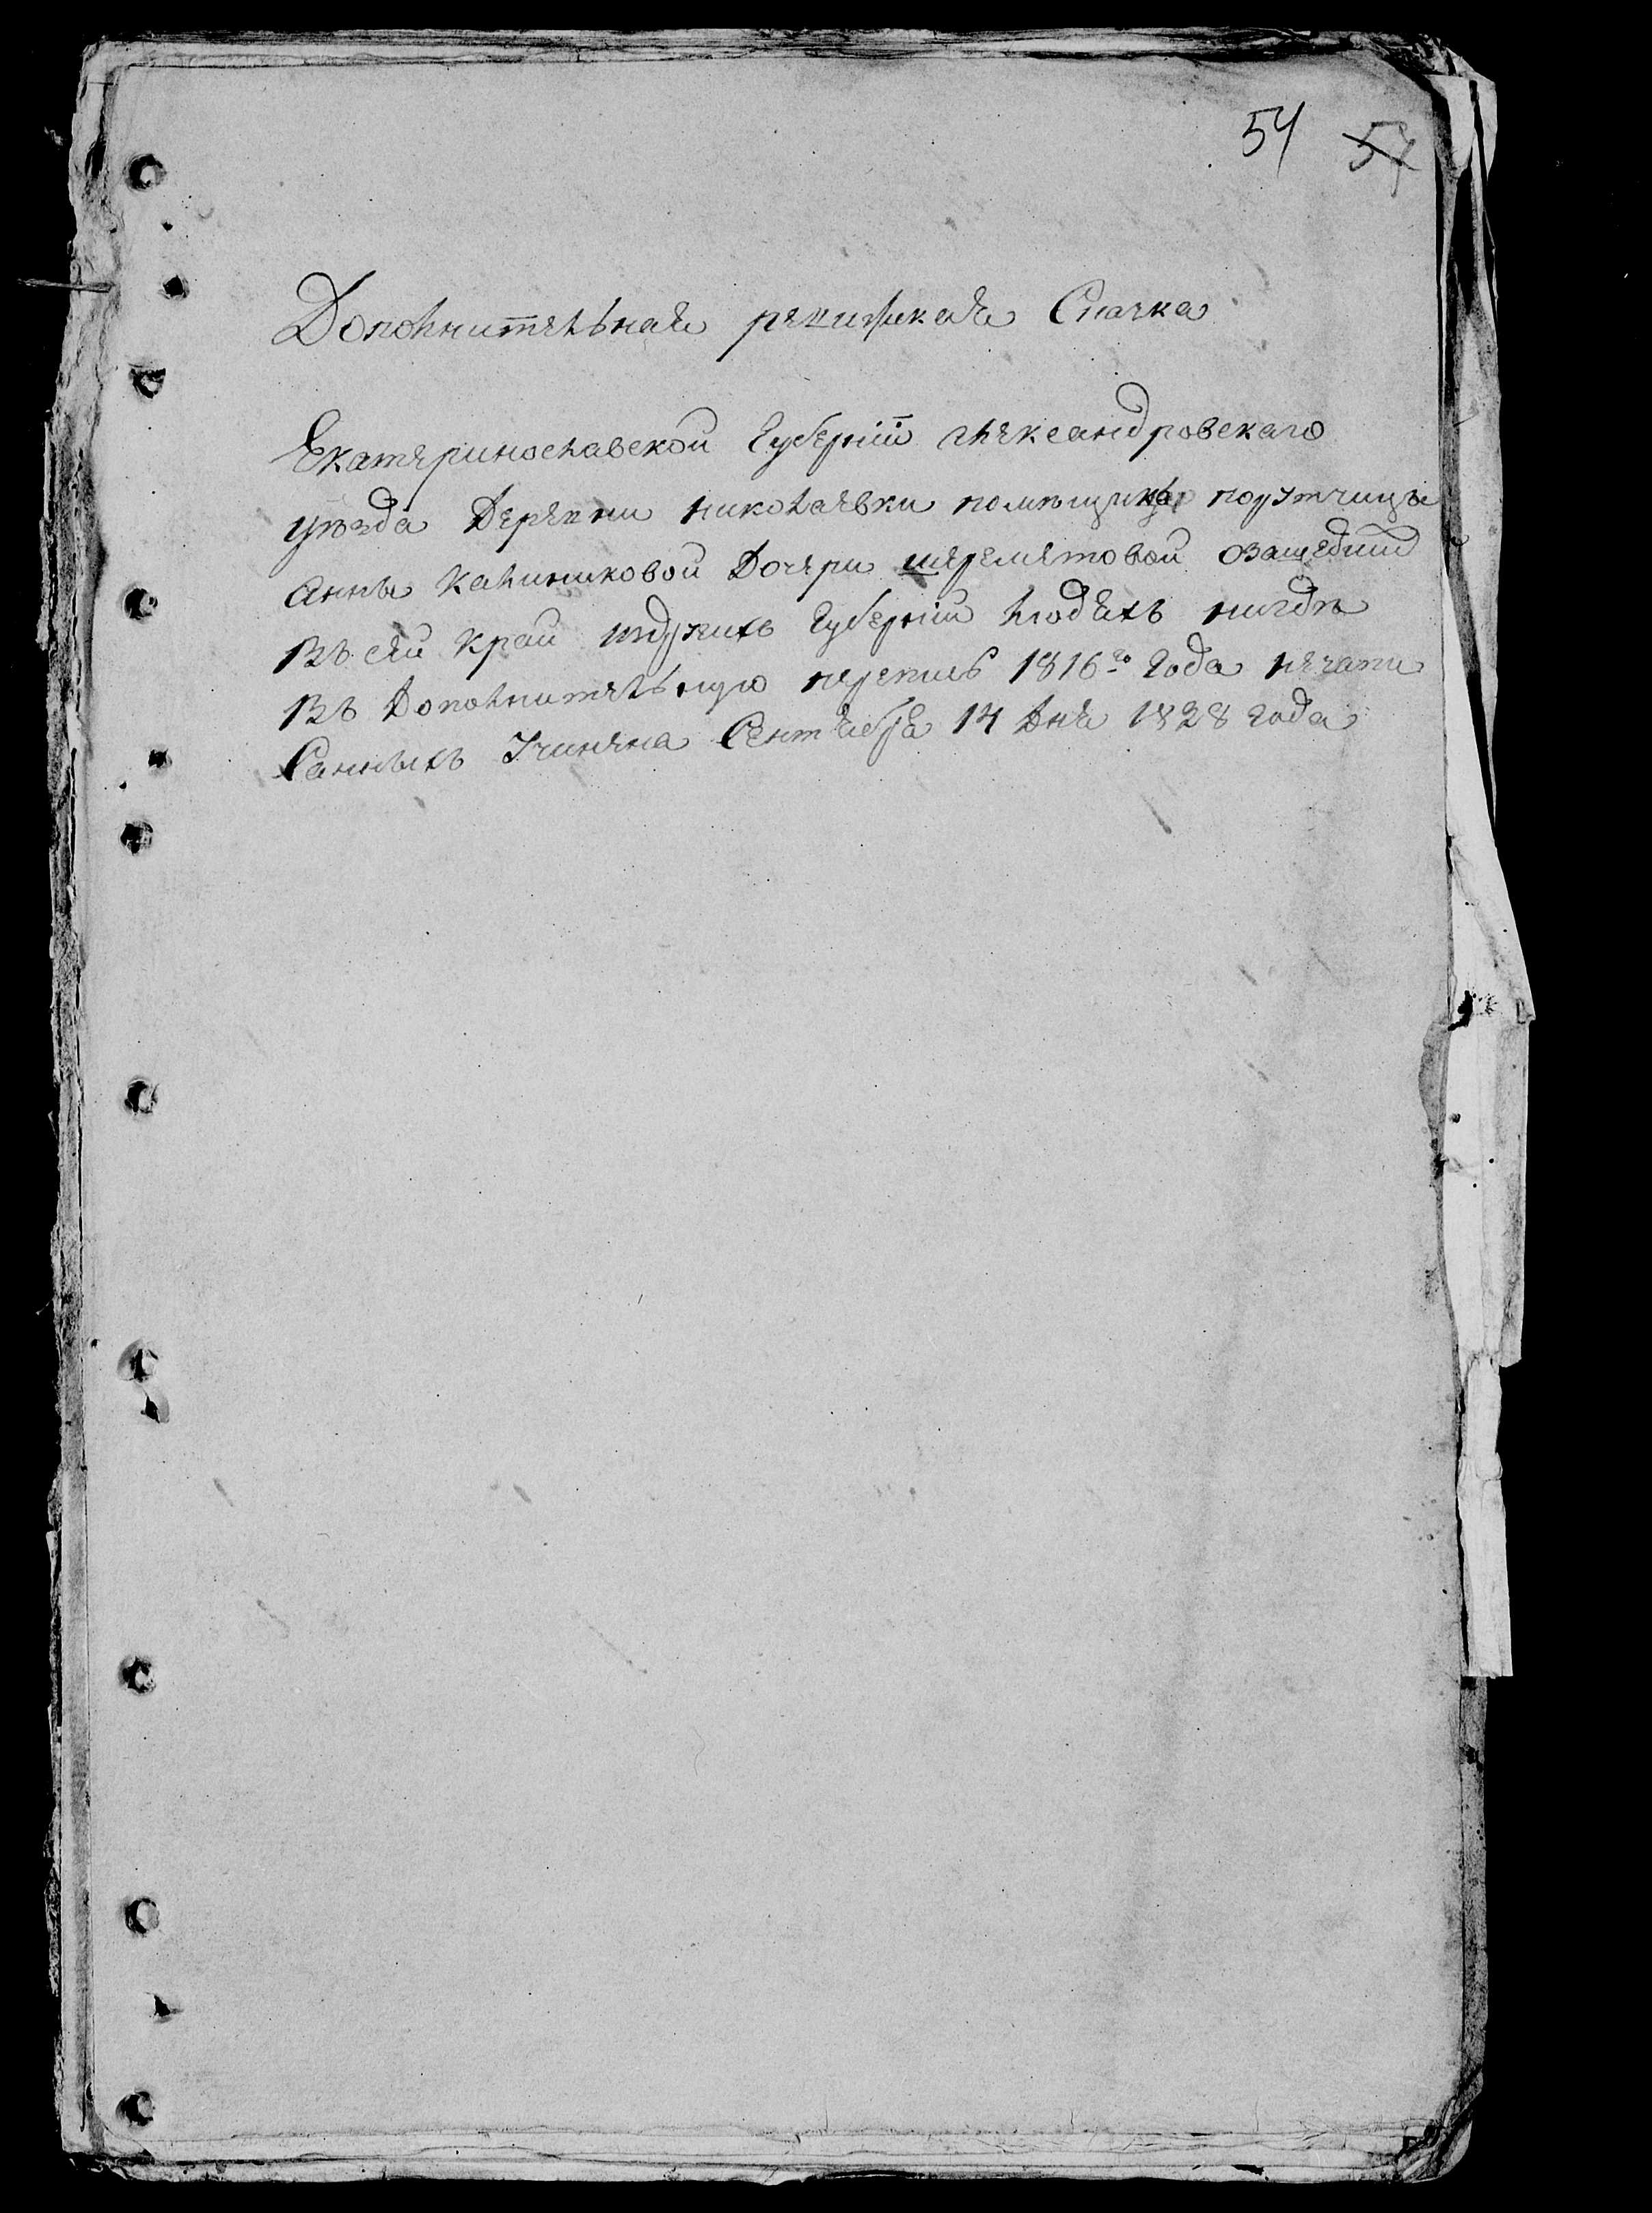 54 57
Дополнительная ревижская Скаска
Екатеринославской Губернїи Александровского
уѣзда Деревни николаевки помѣщицы порутчицы
Анны Калиниковой Дочери шереметовой озашедших
Въ сей край издругихъ Губернїи людяхъ нигдѣ
Въ Дополнительную перепись 1816го Года не
Санныхъ Учинена Сентебря 14 Дня 1828 года